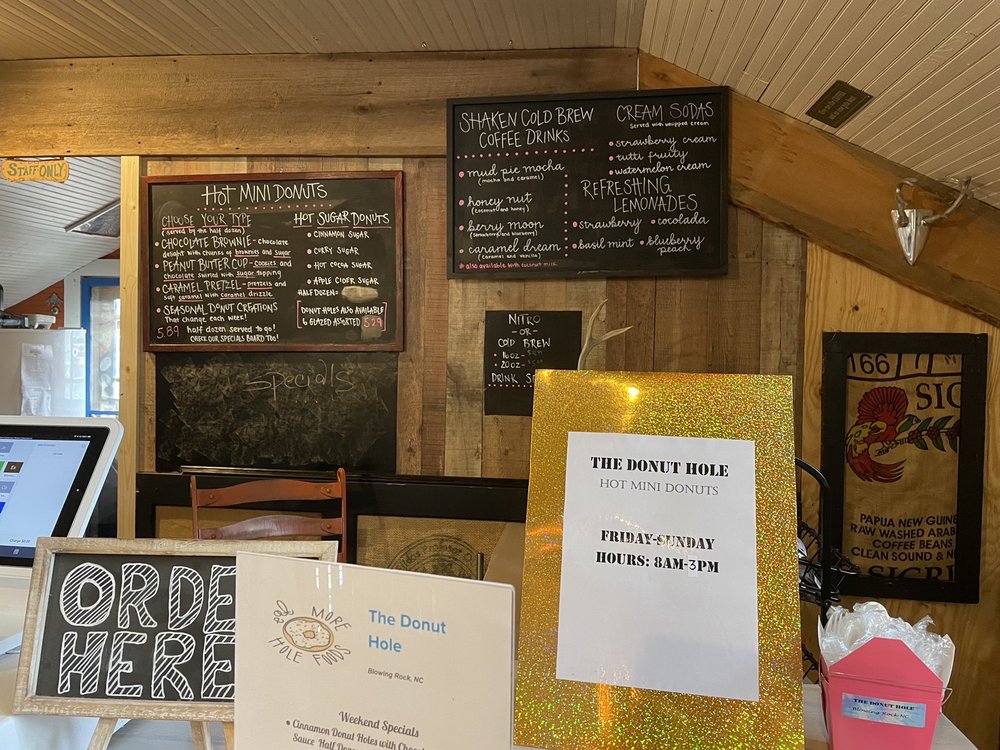 STAFF ONLY
HOT MINI DONUTS
CHOOSE YOUR TYPE
(served by the half dozen)
• CHOCOLATE BROWNIE - chocolate
delight with chunks of brownies and sugar
• PEANUT BUTTER CUP - cookies and
chocolate swirled with sugar topping
• CARAMEL PRETZEL - pretzels and
soft caramel with caramel drizzle
• SEASONAL DONUT CREATIONS
That change each week!
5.89 half dozen served to go!
CHECK OUR SPECIALS BOARD TOO!
HOT SUGAR DONUTS
• CINNAMON SUGAR
• CURRY SUGAR
• HOT COCOA SUGAR
• APPLE CIDER SUGAR
HALF DOZEN:
DONUT HOLES ALSO AVAILABLE
6 GLAZED ASSORTED 5.29
Specials
SHAKEN COLD BREW
COFFEE DRINKS
• mud pie mocha
(mocha and caramel)
• honey nut
(coconut and honey)
• berry moon
(strawberry and blueberry)
• caramel dream
(caramel and vanilla)
* also available with coconut milk
CREAM SODAS
Served with whipped cream
• strawberry cream
• tutti fruity
• watermelon cream
REFRESHING
LEMONADES
• strawberry • cocolada
• basil mint • blueberry
peach
NITRO
- OR -
COLD BREW
• 16oz -
• 20oz -
DRINK
166
SIC
PAPUA NEW GUINE
RAW WASHED ARAB
COFFEE BEANS
CLEAN SOUND & N
SIGRI
THE DONUT HOLE
HOT MINI DONUTS
FRIDAY-SUNDAY
HOURS: 8AM-3PM
ORDE
HERE
Charge $0.00
MORE
HOLE FOODS
The Donut
Hole
Blowing Rock, NC
Weekend Specials
• Cinnamon Donut Holes with Choco
Sauce Half Doze
THE DONUT HOLE
Blowing Rock, NC